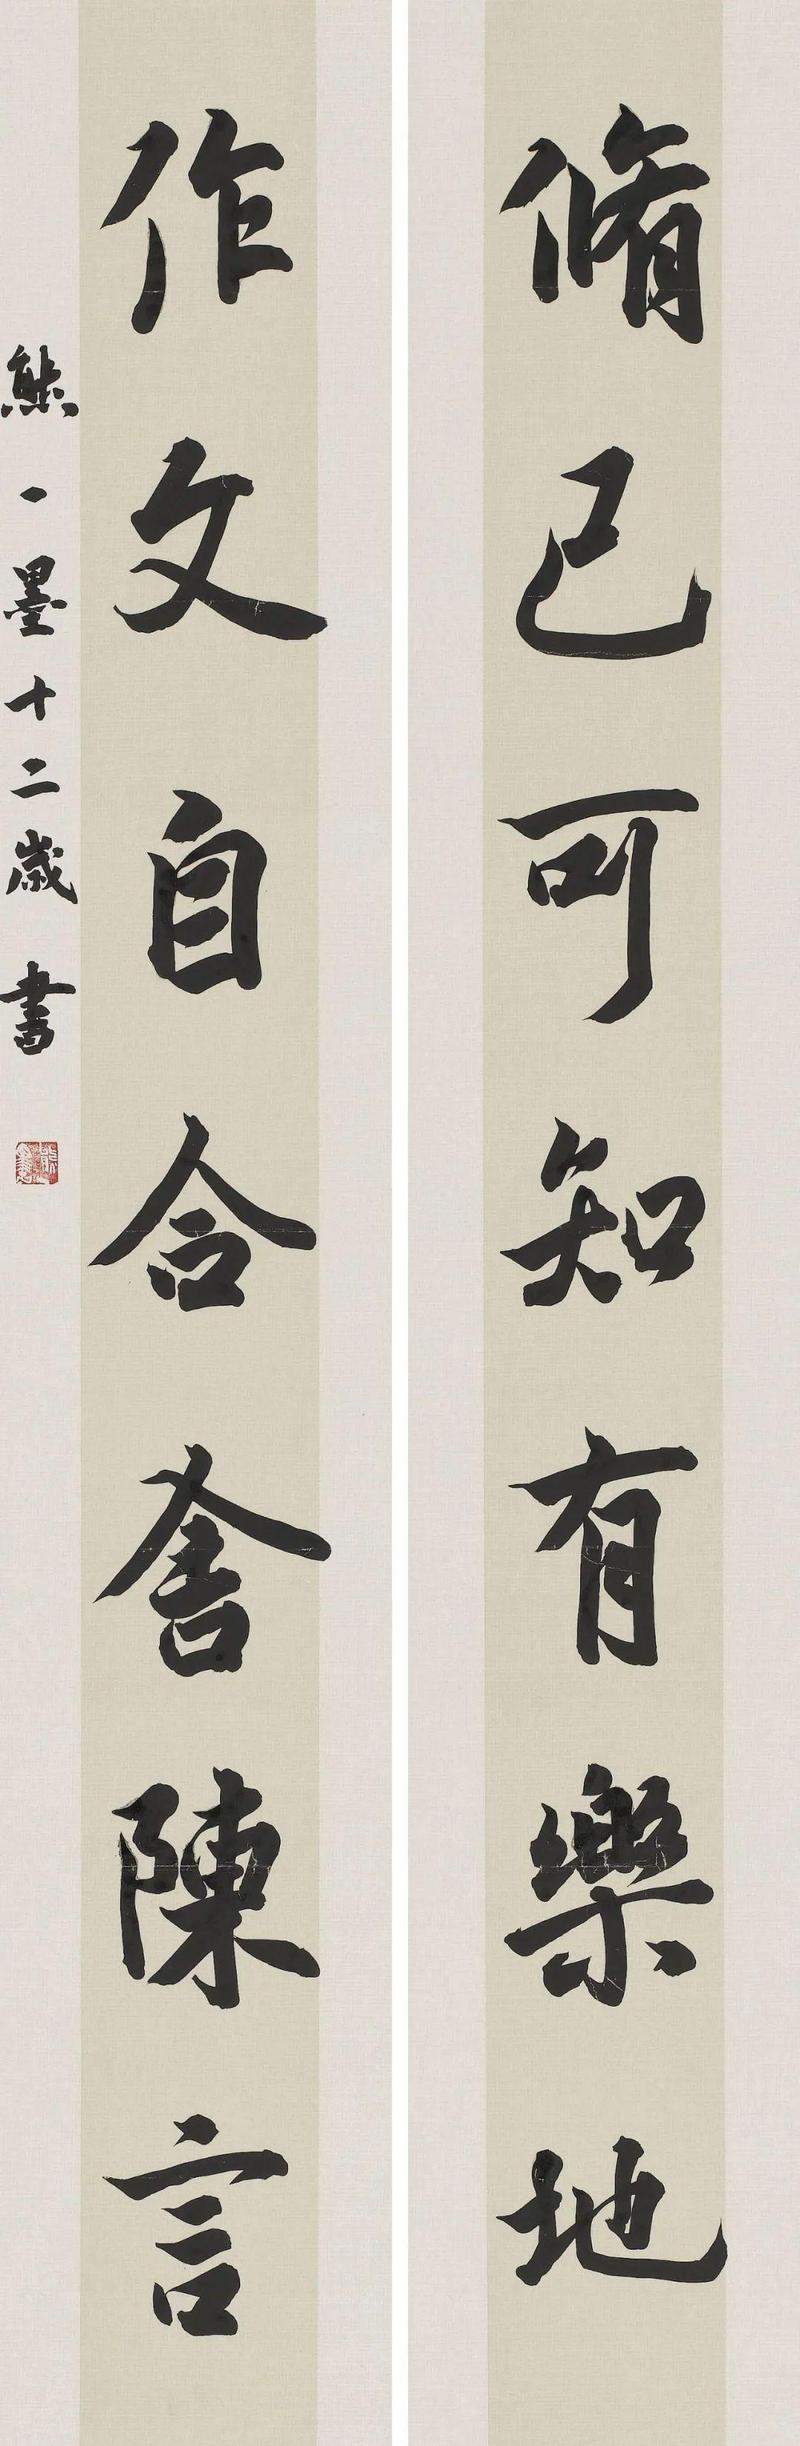 脩己可知有樂地
作文自合舍陳言
熊一墨十二歲書